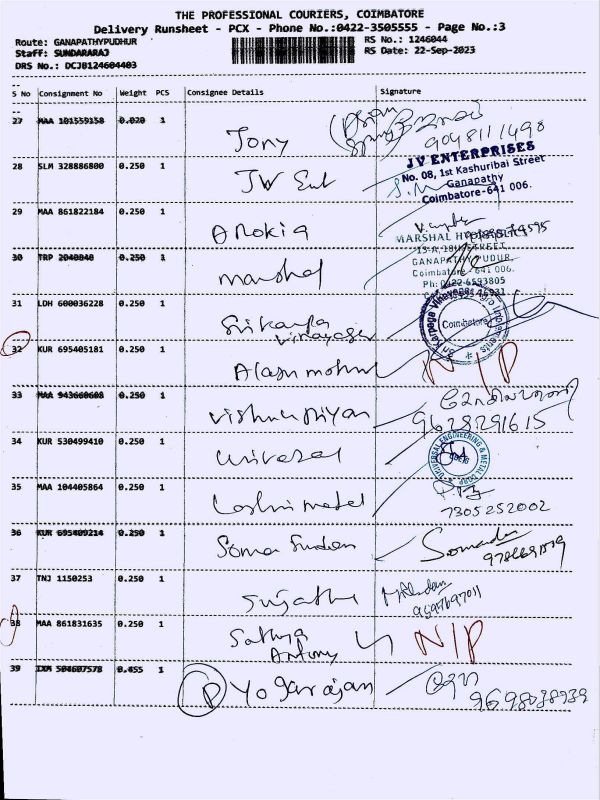 THE PROFESSIONAL COURIERS, COIMBATORE
Delivery Runsheet - PCX - Phone No.:0422-3505555 - Page No.:3
Route: GANAPATHYPUDHUR
RS No.: 1246044
Staff: SUNDARARAJ
RS Date: 22-Sep-2023
DRS No.: DCJB124604403
S No Consignment No Weight PCS Consignee Details Signature
27 MAA 101559158 0.020 1 Tony
9048111498
28 SLM 328886800 0.250 1 JV Ent
JV ENTERPRISES
No. 08, 1st Kashuribai Street
Ganapathy
Coimbatore-641 006.
29 MAA 861822184 0.250 1 Arokia
30 TRP 2040840 0.250 1 Marshal
GANAPATHYPUDUR,
Coimbatore - 641 006.
Ph: 0422-6593805
31 LDH 600036228 0.250 1 Srikarpa Vinayager
Coimbatore
32 KUR 695405181 0.250 1 Alagu mohan N/P
33 MAA 943660608 0.250 1 Vishnu Priyan
9628291615
34 KUR 530499410 0.250 1 Universal
UNIVERSAL ENGINEERING & METAL CORP.
35 MAA 104405864 0.250 1 Lashmi metal
7305252002
36 KUR 695409214 0.250 1 Soma Sundar
37 TNJ 1150253 0.250 1 Sujatha
38 MAA 861831635 0.250 1 Sathya Antony N/P
39 IXM 504607578 0.455 1 P Yogarajan
9698038939